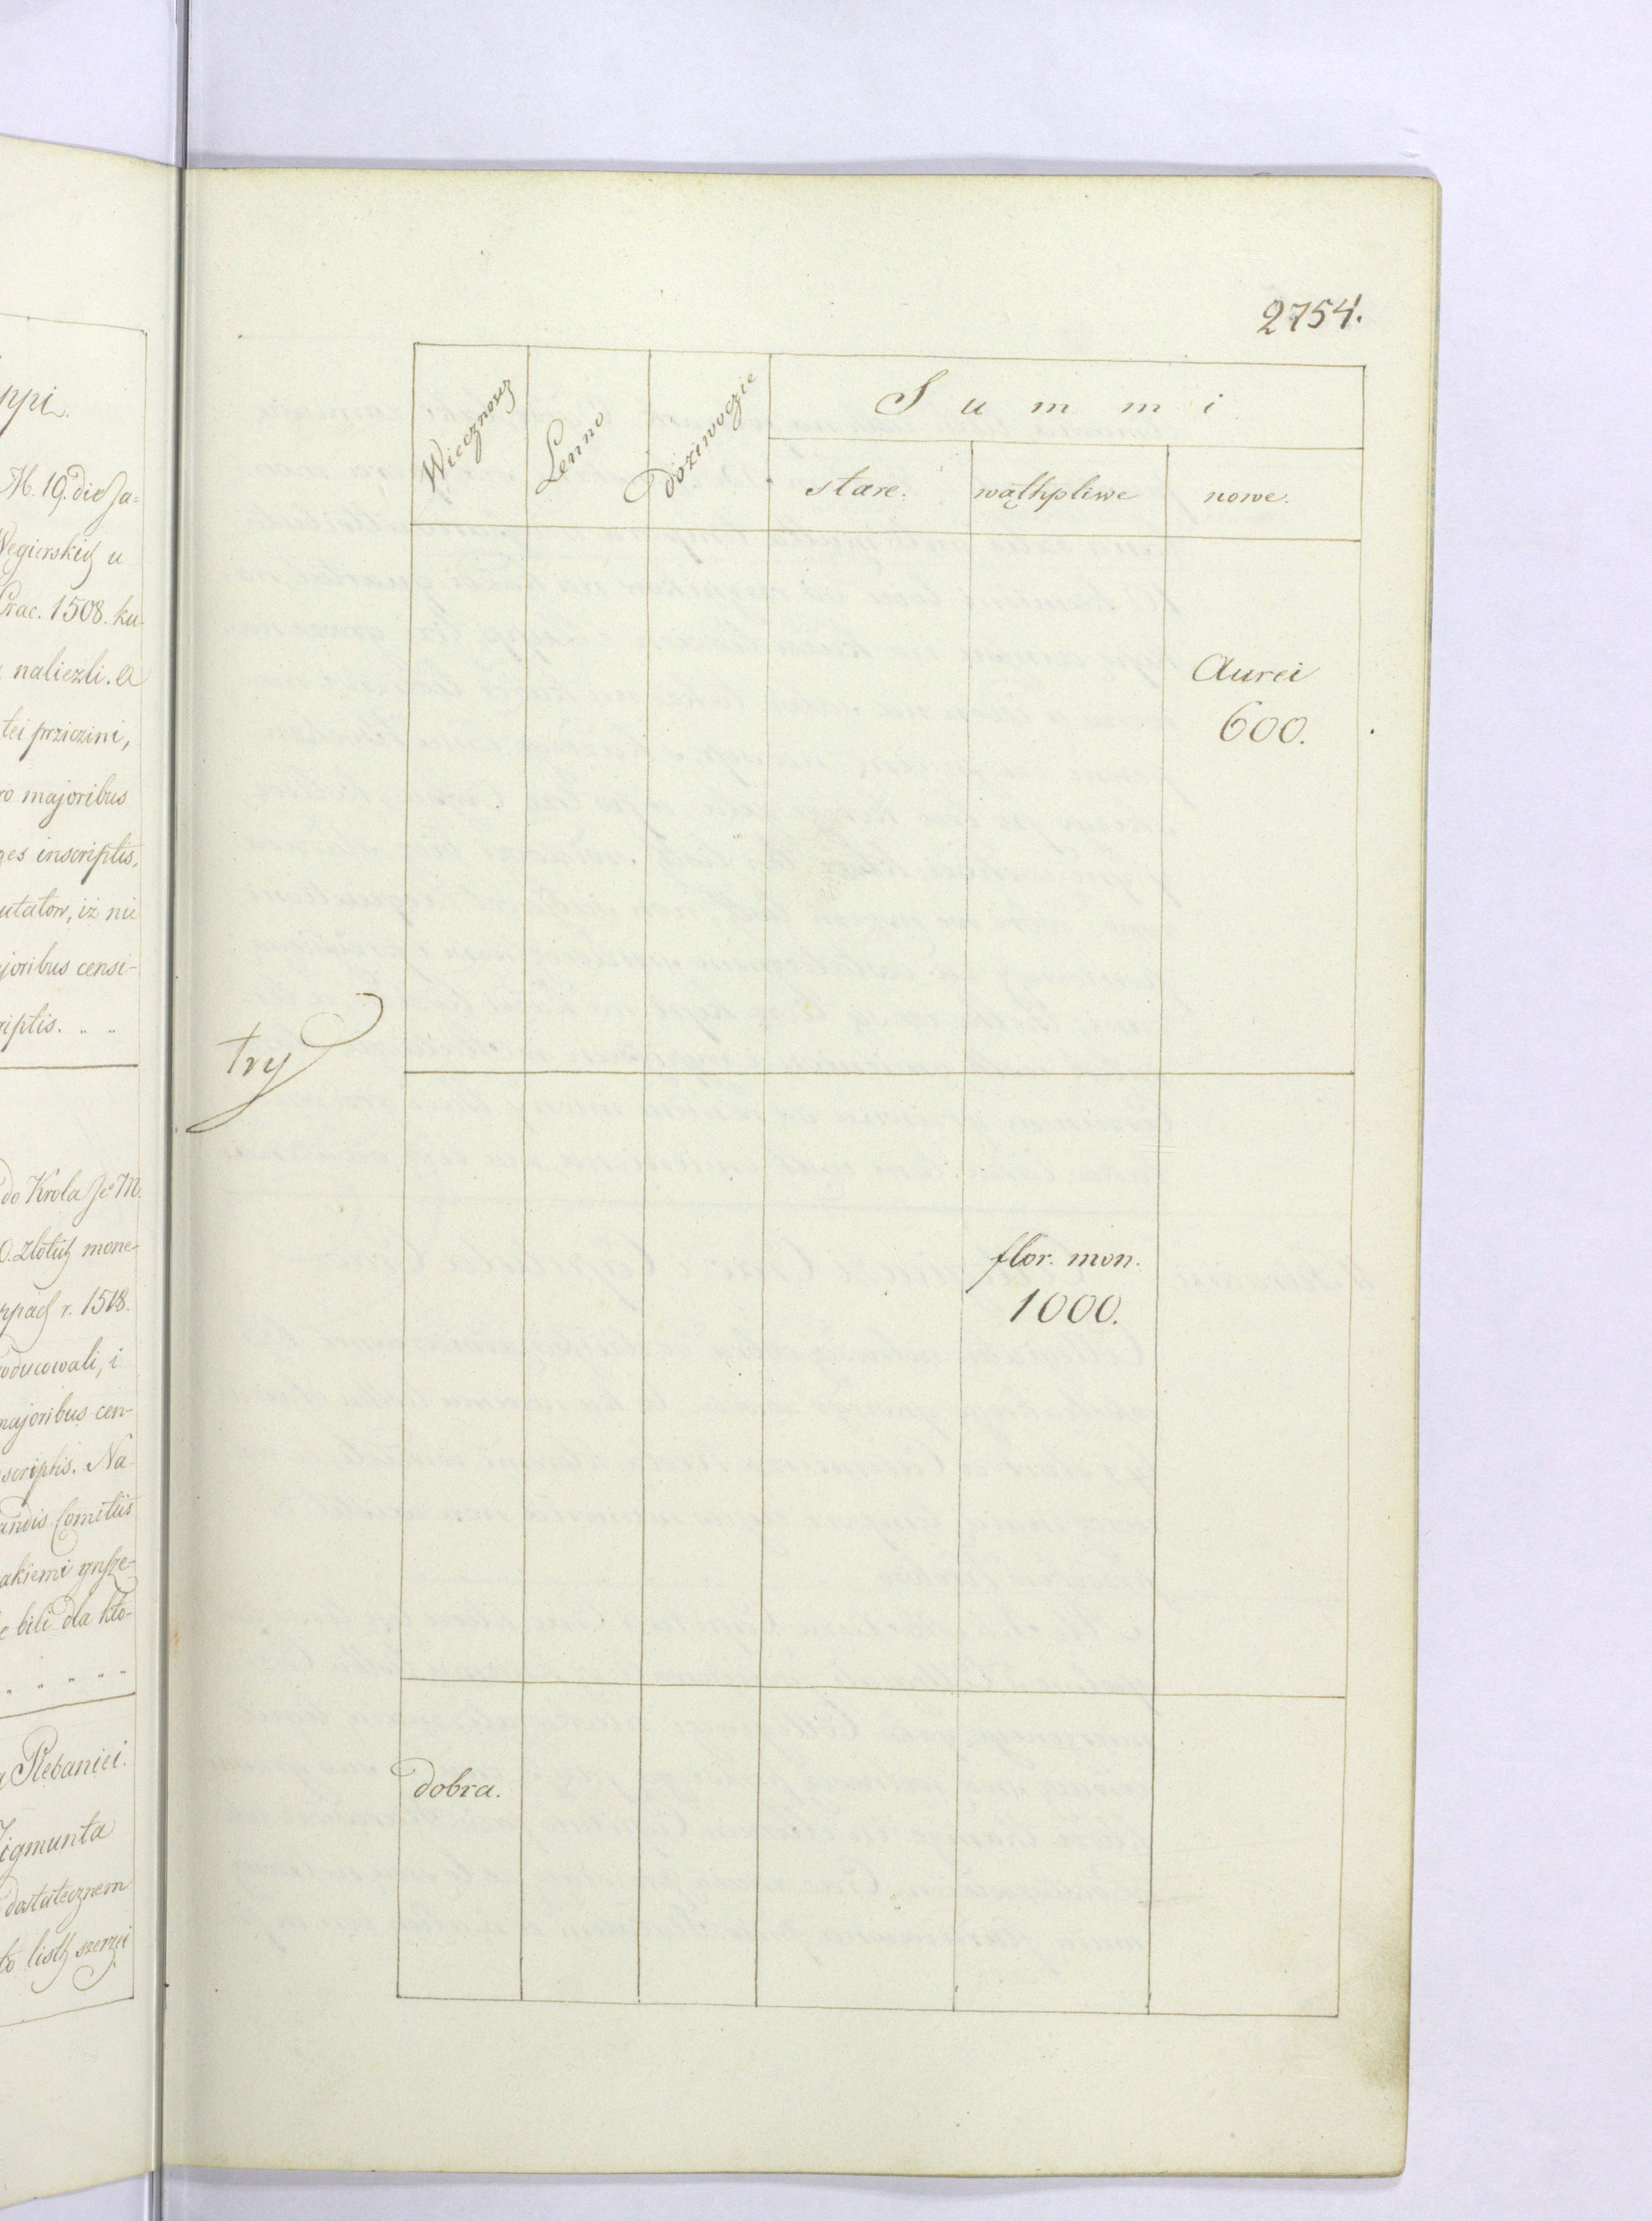 ppi.
M. 19. die Ja=
Wegierskich u
Crac. 1508. ku-
naliezli. a
tei prziczini,
ro majoribus
ges inscriptis,
utatow, iż nie
joribus censi-
riptis. „ „
do Krola Je° M.
0. złotich mone-
r. 1518.
oducowali, i
majoribus cen-
scriptis. Na
andis Comitiis
akiemi
e bili dla kto-
„ „ „ „ „
Plebaniei.
Zigmunta
dostatecznem
to listh szerzei
2754.
Wiecznosz Lenno Dożiwoczie Summi
stare. wąthpliwe nowe.
Aurei
600.
try
flor. mon.
1000.
dobra.